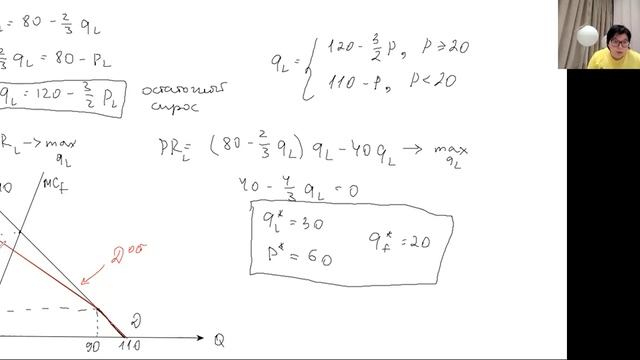 = 80 - 2/3 q_L
2/3 q_L = 80 - P_L
q_L = 120 - 3/2 P_L
остаточный
спрос
q_L = { 120 - 3/2 P, P ≥ 20
110 - P, P < 20
R_L → max
q_L
PR_L = (80 - 2/3 q_L) q_L - 40 q_L → max
q_L
40 - 4/3 q_L = 0
q_L* = 30
P* = 60
q_f* = 20
MC_f
D^об
D
90 110
Q